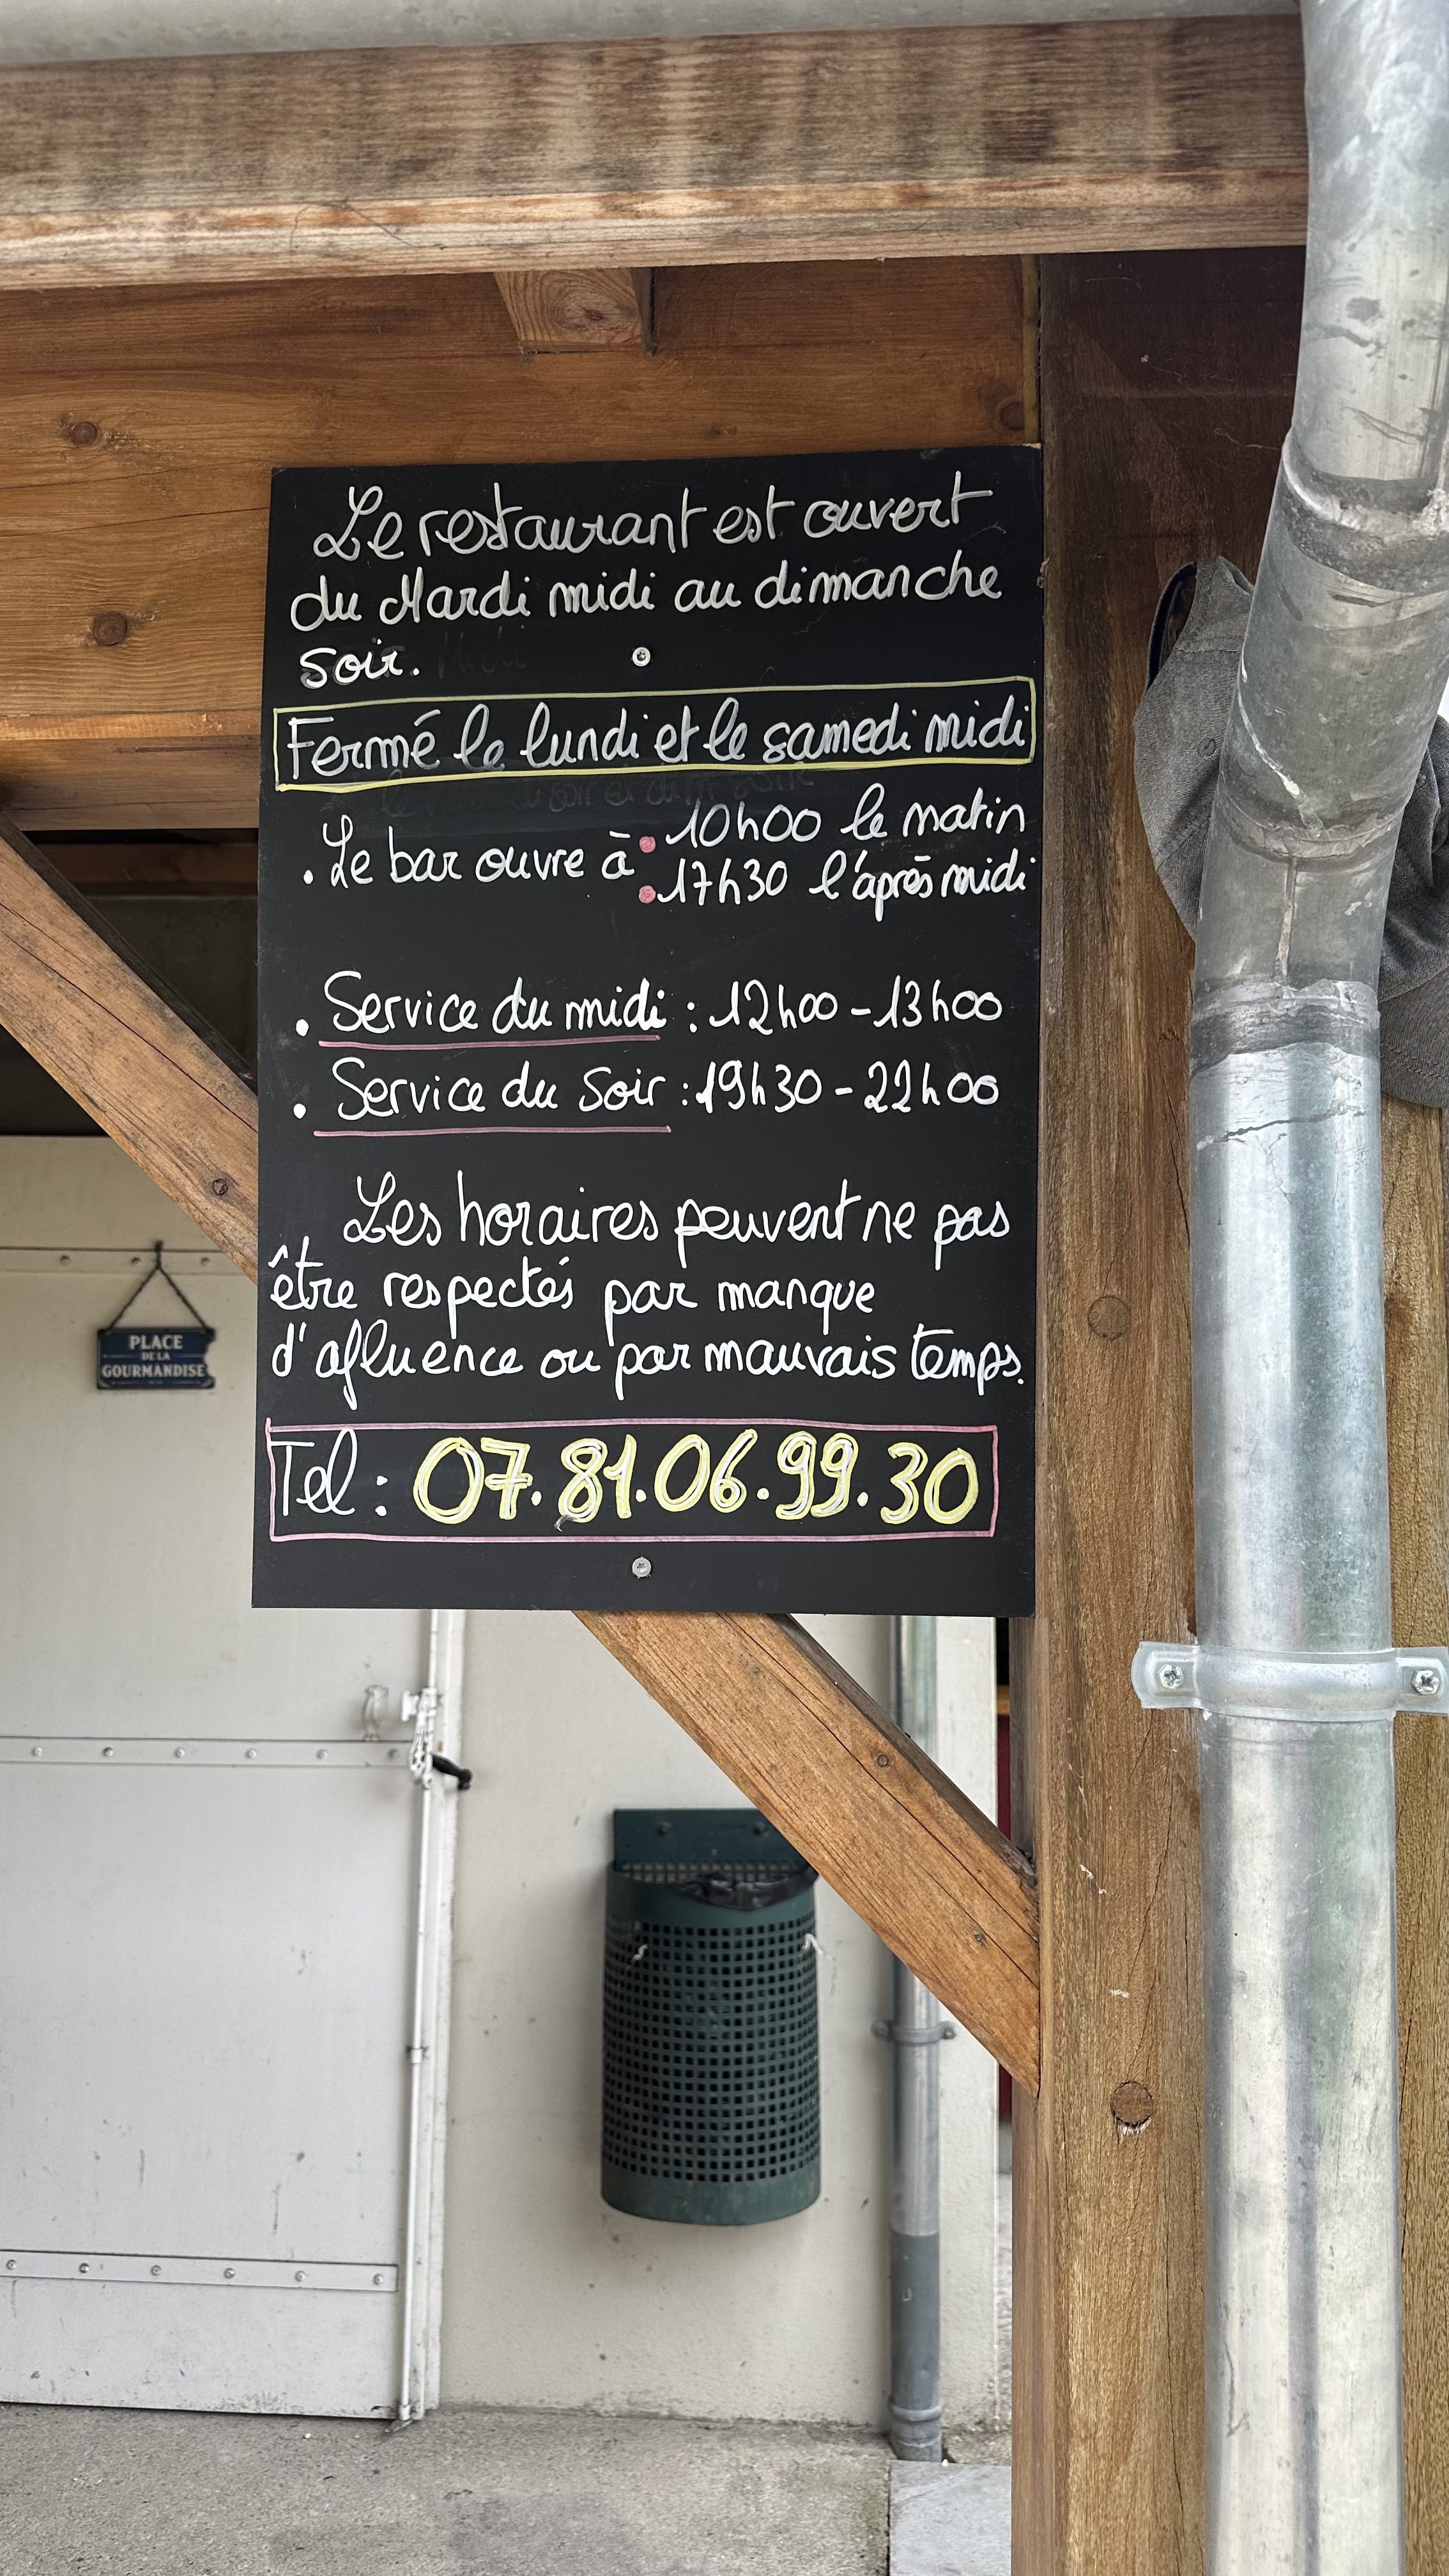 Le restaurant est ouvert
du Mardi midi au dimanche
soir.
Fermé le lundi et le samedi midi
. Le bar ouvre à • 10h00 le matin
• 17h30 l'après midi
. Service du midi : 12h00 - 13h00
. Service du soir : 19h30 - 22h00
Les horaires peuvent ne pas
être respectés par manque
d'afluence ou par mauvais temps.
Tel : 07.81.06.99.30
PLACE
DE LA
GOURMANDISE